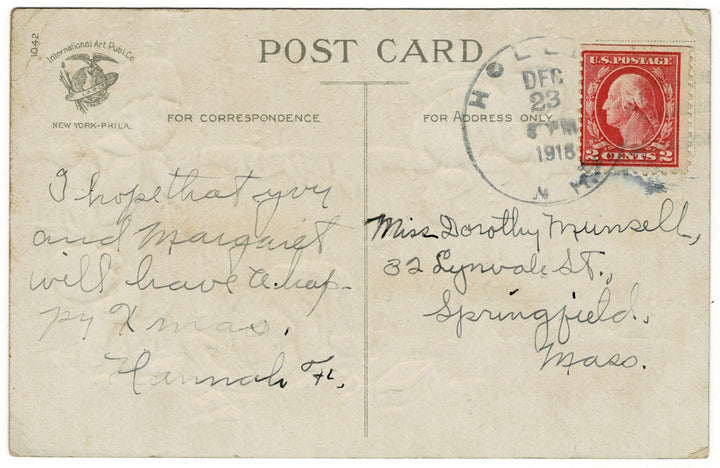 1042
International Art Publ. Co.
NEW YORK-PHILA.
POST CARD
FOR CORRESPONDENCE
FOR ADDRESS ONLY
DEC
23
PM
1918
N H
U.S. POSTAGE
2 CENTS 2
I hope that you
and Margaret
will have a hap-
py Xmas.
Hannah F.
Miss Dorothy Munsell,
32 Lynvale St.,
Springfield.
Mass.